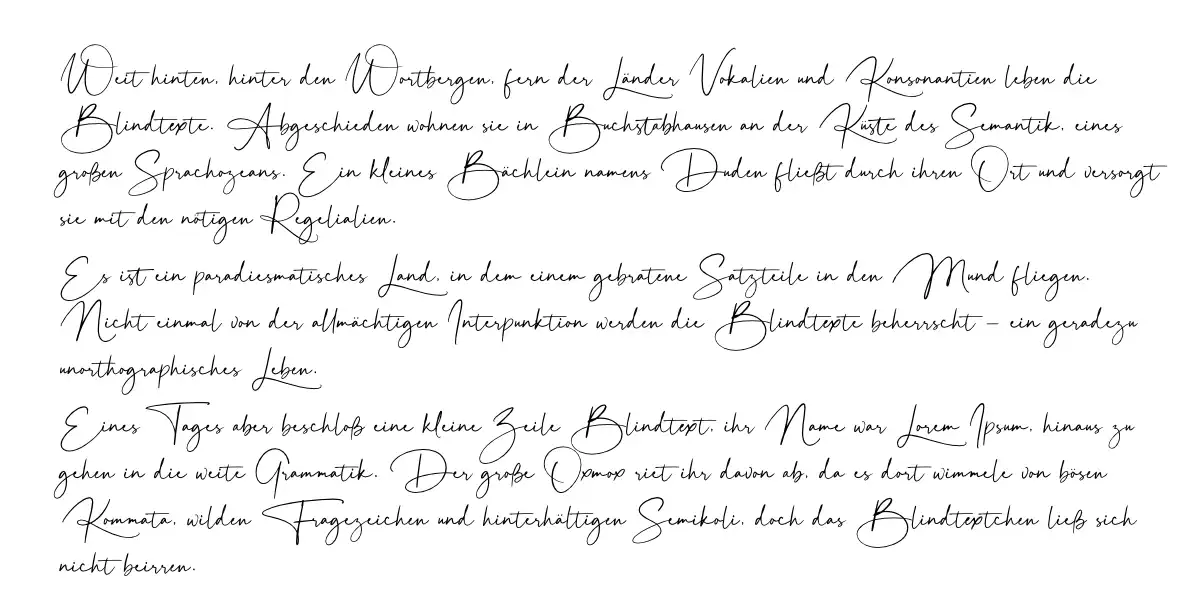 Weit hinten, hinter den Wortbergen, fern der Länder Vokalien und Konsonantien leben die
Blindtexte. Abgeschieden wohnen sie in Buchstabhausen an der Küste des Semantik, eines
großen Sprachozeans. Ein kleines Bächlein namens Duden fließt durch ihren Ort und versorgt
sie mit den nötigen Regelialien.
Es ist ein paradiesmatisches Land, in dem einem gebratene Satzteile in den Mund fliegen.
Nicht einmal von der allmächtigen Interpunktion werden die Blindtexte beherrscht – ein geradezu
unorthographisches Leben.
Eines Tages aber beschloß eine kleine Zeile Blindtext, ihr Name war Lorem Ipsum, hinaus zu
gehen in die weite Grammatik. Der große Oxmox riet ihr davon ab, da es dort wimmele von bösen
Kommata, wilden Fragezeichen und hinterhältigen Semikoli, doch das Blindtextchen ließ sich
nicht beirren.